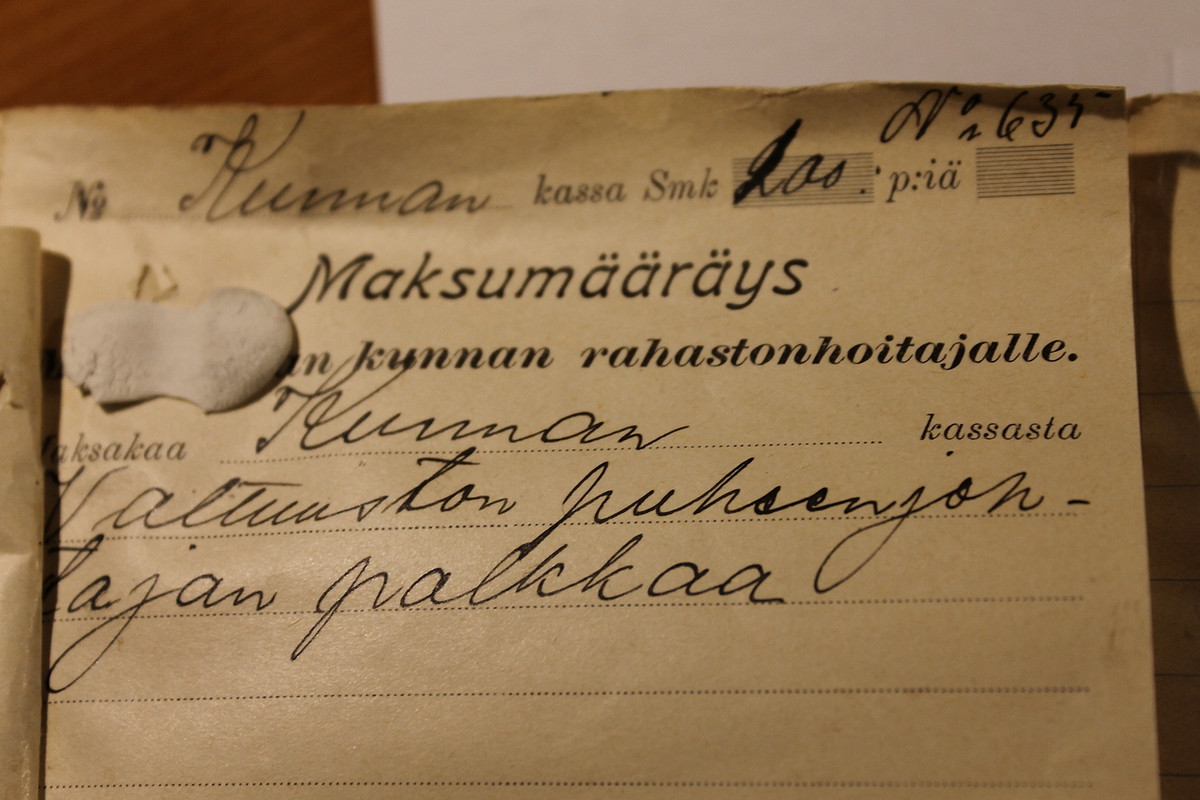 No 635
No Kunnan kassa Smk 200: p:iä
Maksumääräys
an kunnan rahastonhoitajalle.
aksakaa Kunnan kassasta
Valtuuston puheenjoh-
tajan palkkaa